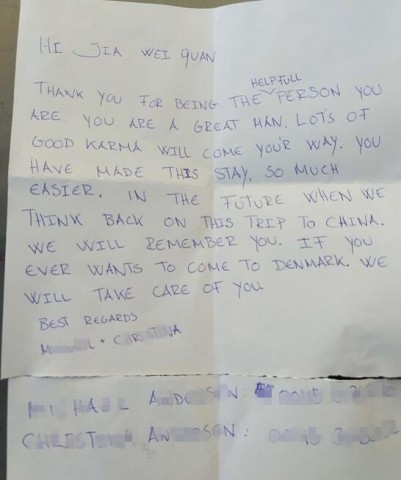 HI JIA WEI QUAN
HELPFULL
THANK YOU FOR BEING THE PERSON YOU
ARE YOU ARE A GREAT MAN. LOT'S OF
GOOD KARMA WILL COME YOU'R WAY. YOU
HAVE MADE THIS STAY, SO MUCH
EASIER. IN THE FUTURE WHEN WE
THINK BACK ON THIS TRIP TO CHINA.
WE WILL REMEMBER YOU. IF YOU
EVER WANTS TO COME TO DENMARK. WE
WILL TAKE CARE OF YOU
BEST REGARDS